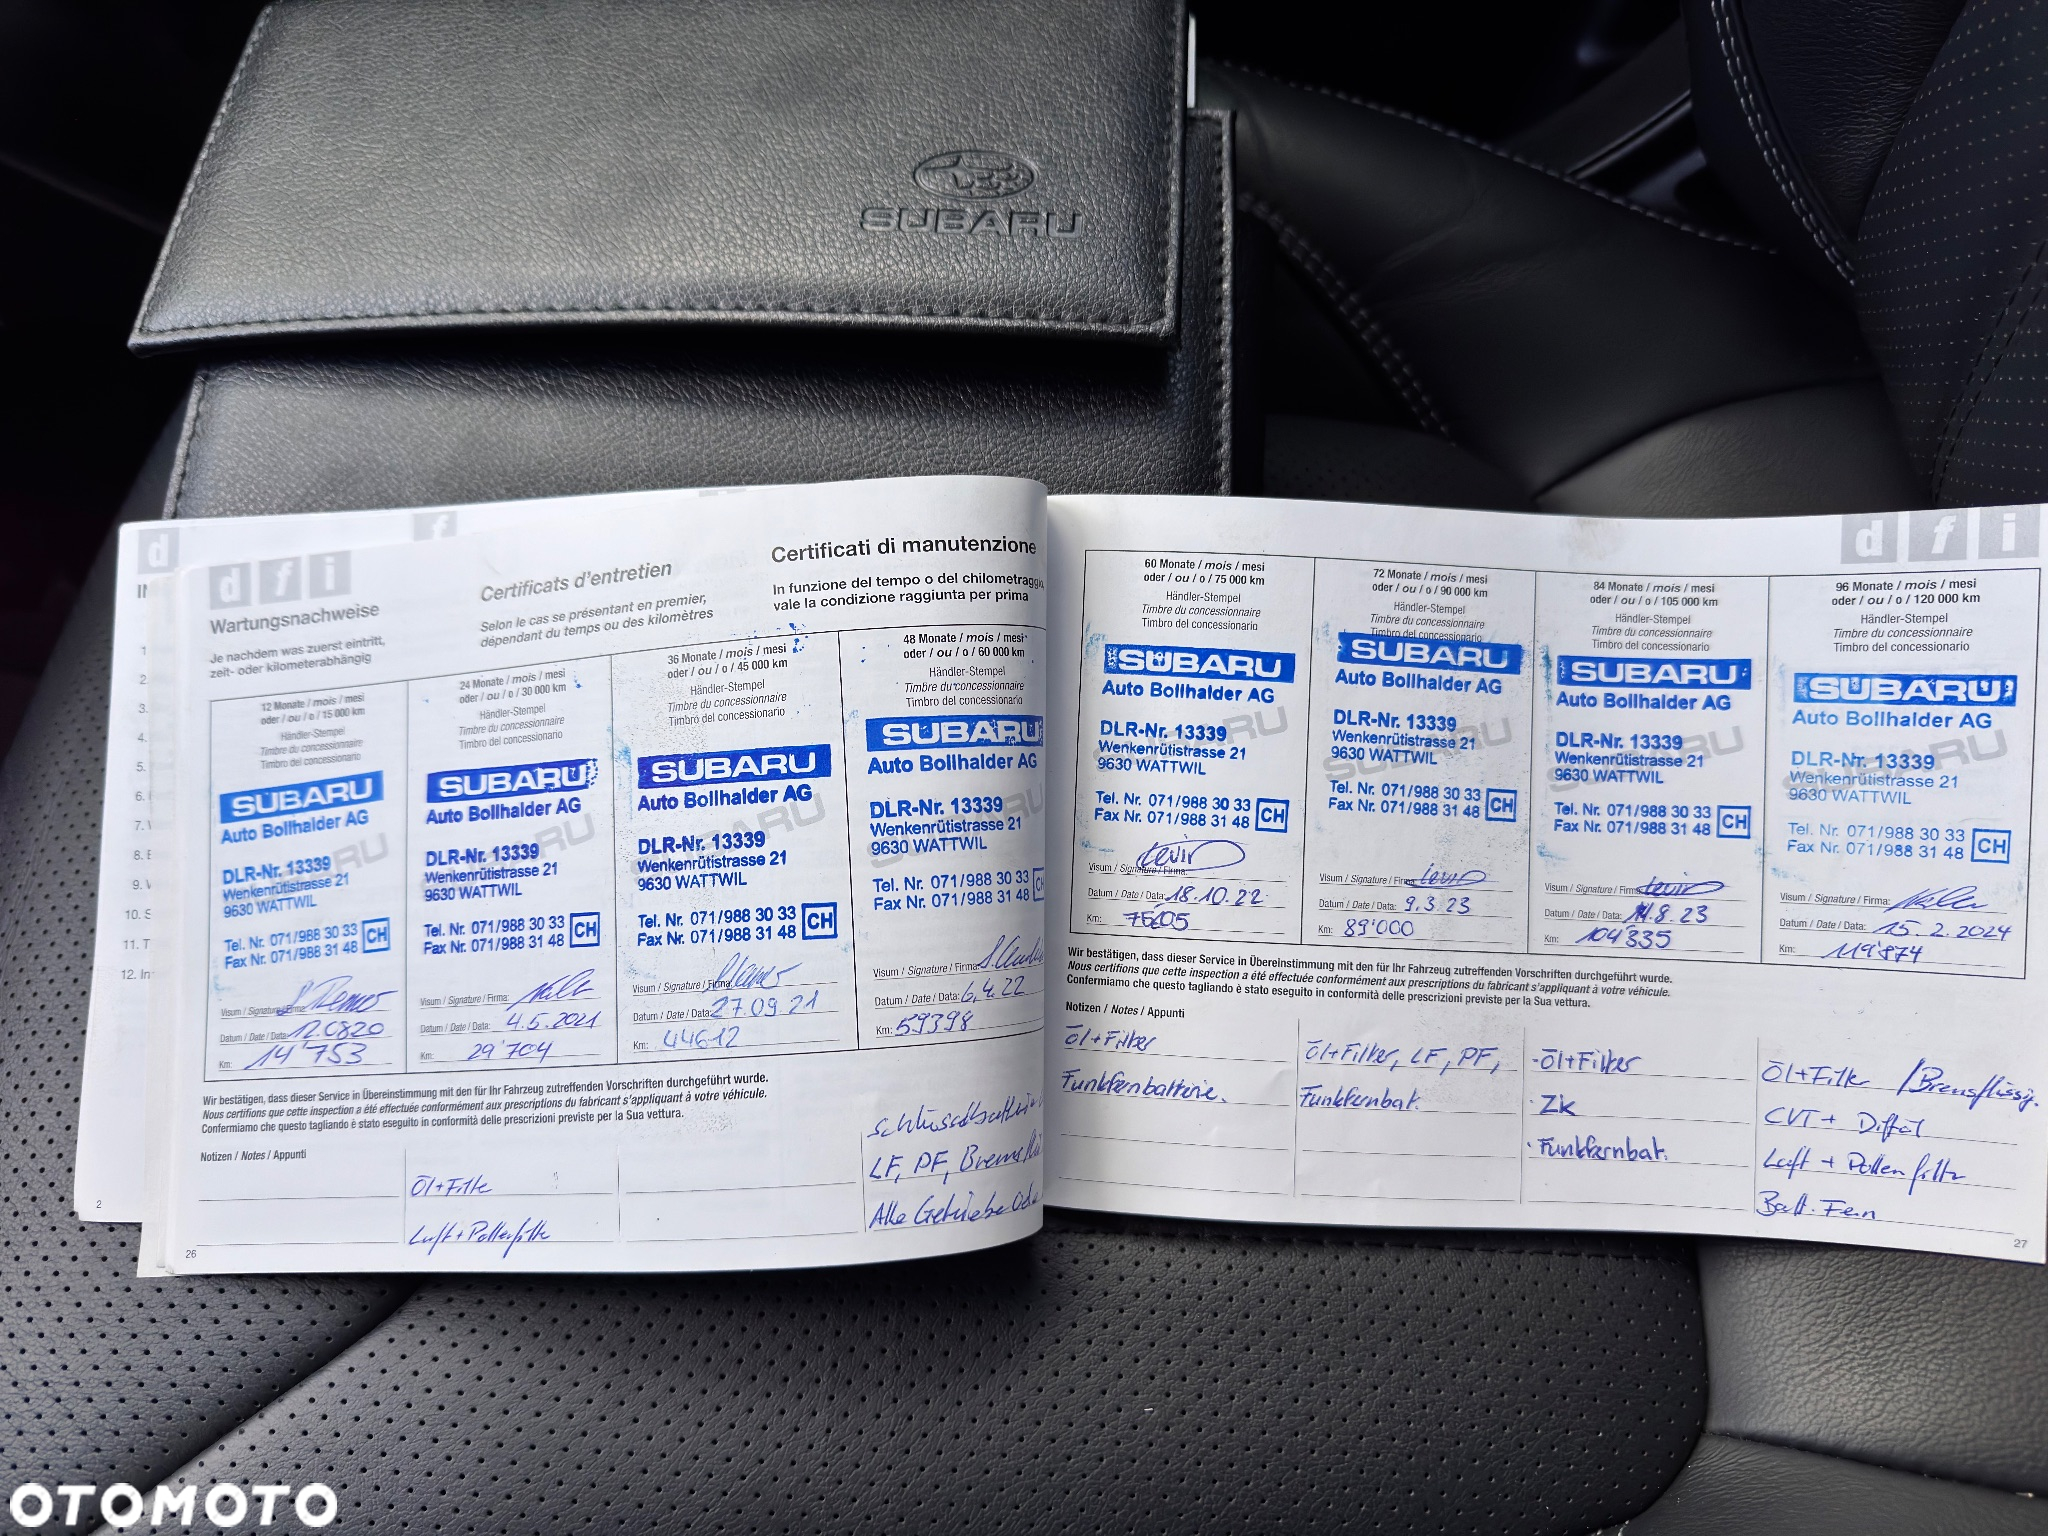 SUBARU
d f i
Wartungsnachweise
Je nachdem was zuerst eintritt,
zeit- oder kilometerabhängig
Certificats d'entretien
Selon le cas se présentant en premier,
dépendant du temps ou des kilomètres
Certificati di manutenzione
In funzione del tempo o del chilometraggio,
vale la condizione raggiunta per prima
12 Monate / mois / mesi
oder / ou / o / 15 000 km
Händler-Stempel
Timbre du concessionnaire
Timbro del concessionario
SUBARU
Auto Bollhalder AG
DLR-Nr. 13339
Wenkenrütistrasse 21
9630 WATTWIL
Tel. Nr. 071/988 30 33
Fax Nr. 071/988 31 48
CH
Visum / Signature / Firma:
Datum / Date / Data: 12.08.20
Km: 14'753
24 Monate / mois / mesi
oder / ou / o / 30 000 km
Händler-Stempel
Timbre du concessionnaire
Timbro del concessionario
SUBARU
Auto Bollhalder AG
DLR-Nr. 13339
Wenkenrütistrasse 21
9630 WATTWIL
Tel. Nr. 071/988 30 33
Fax Nr. 071/988 31 48
CH
Visum / Signature / Firma:
Datum / Date / Data: 4.5.2021
Km: 29'704
36 Monate / mois / mesi
oder / ou / o / 45 000 km
Händler-Stempel
Timbre du concessionnaire
Timbro del concessionario
SUBARU
Auto Bollhalder AG
DLR-Nr. 13339
Wenkenrütistrasse 21
9630 WATTWIL
Tel. Nr. 071/988 30 33
Fax Nr. 071/988 31 48
CH
Visum / Signature / Firma:
Datum / Date / Data: 27.09.21
Km: 44612
48 Monate / mois / mesi
oder / ou / o / 60 000 km
Händler-Stempel
Timbre du concessionnaire
Timbro del concessionario
SUBARU
Auto Bollhalder AG
DLR-Nr. 13339
Wenkenrütistrasse 21
9630 WATTWIL
Tel. Nr. 071/988 30 33
Fax Nr. 071/988 31 48
Visum / Signature / Firma:
Datum / Date / Data: 6.4.22
Km: 59398
Wir bestätigen, dass dieser Service in Übereinstimmung mit den für Ihr Fahrzeug zutreffenden Vorschriften durchgeführt wurde.
Nous certifions que cette inspection a été effectuée conformément aux prescriptions du fabricant s'appliquant à votre véhicule.
Confermiamo che questo tagliando è stato eseguito in conformità delle prescrizioni previste per la Sua vettura.
Notizen / Notes / Appunti
Öl+Filte
Luft+Pollenfilte
LF, PF,
Alle Getriebe
2
26
d f i
60 Monate / mois / mesi
oder / ou / o / 75 000 km
Händler-Stempel
Timbre du concessionnaire
Timbro del concessionario
SUBARU
Auto Bollhalder AG
DLR-Nr. 13339
Wenkenrütistrasse 21
9630 WATTWIL
Tel. Nr. 071/988 30 33
Fax Nr. 071/988 31 48
CH
Visum / Signature / Firma:
Datum / Date / Data: 18.10.22
Km:
72 Monate / mois / mesi
oder / ou / o / 90 000 km
Händler-Stempel
Timbre du concessionnaire
Timbro del concessionario
SUBARU
Auto Bollhalder AG
DLR-Nr. 13339
Wenkenrütistrasse 21
9630 WATTWIL
Tel. Nr. 071/988 30 33
Fax Nr. 071/988 31 48
CH
Visum / Signature / Firma:
Datum / Date / Data: 9.3.23
Km: 89'000
84 Monate / mois / mesi
oder / ou / o / 105 000 km
Händler-Stempel
Timbre du concessionnaire
Timbro del concessionario
SUBARU
Auto Bollhalder AG
DLR-Nr. 13339
Wenkenrütistrasse 21
9630 WATTWIL
Tel. Nr. 071/988 30 33
Fax Nr. 071/988 31 48
CH
Visum / Signature / Firma:
Datum / Date / Data:
Km: 104'335
96 Monate / mois / mesi
oder / ou / o / 120 000 km
Händler-Stempel
Timbre du concessionnaire
Timbro del concessionario
SUBARU
Auto Bollhalder AG
DLR-Nr. 13339
Wenkenrütistrasse 21
9630 WATTWIL
Tel. Nr. 071/988 30 33
Fax Nr. 071/988 31 48
CH
Visum / Signature / Firma:
Datum / Date / Data: 15.2.2024
Km: 119'874
Wir bestätigen, dass dieser Service in Übereinstimmung mit den für Ihr Fahrzeug zutreffenden Vorschriften durchgeführt wurde.
Nous certifions que cette inspection a été effectuée conformément aux prescriptions du fabricant s'appliquant à votre véhicule.
Confermiamo che questo tagliando è stato eseguito in conformità delle prescrizioni previste per la Sua vettura.
Notizen / Notes / Appunti
Öl+Filter
Funkfernbatterie.
Öl+Filter, LF, PF,
Funkfernbat.
·Öl+Filter
·ZK
·Funkfernbat.
Öl+Filter /Bremsflüssig.
CVT + Difföl
Luft + Pollenfilte
Batt. Fern
27
OTOMOTO